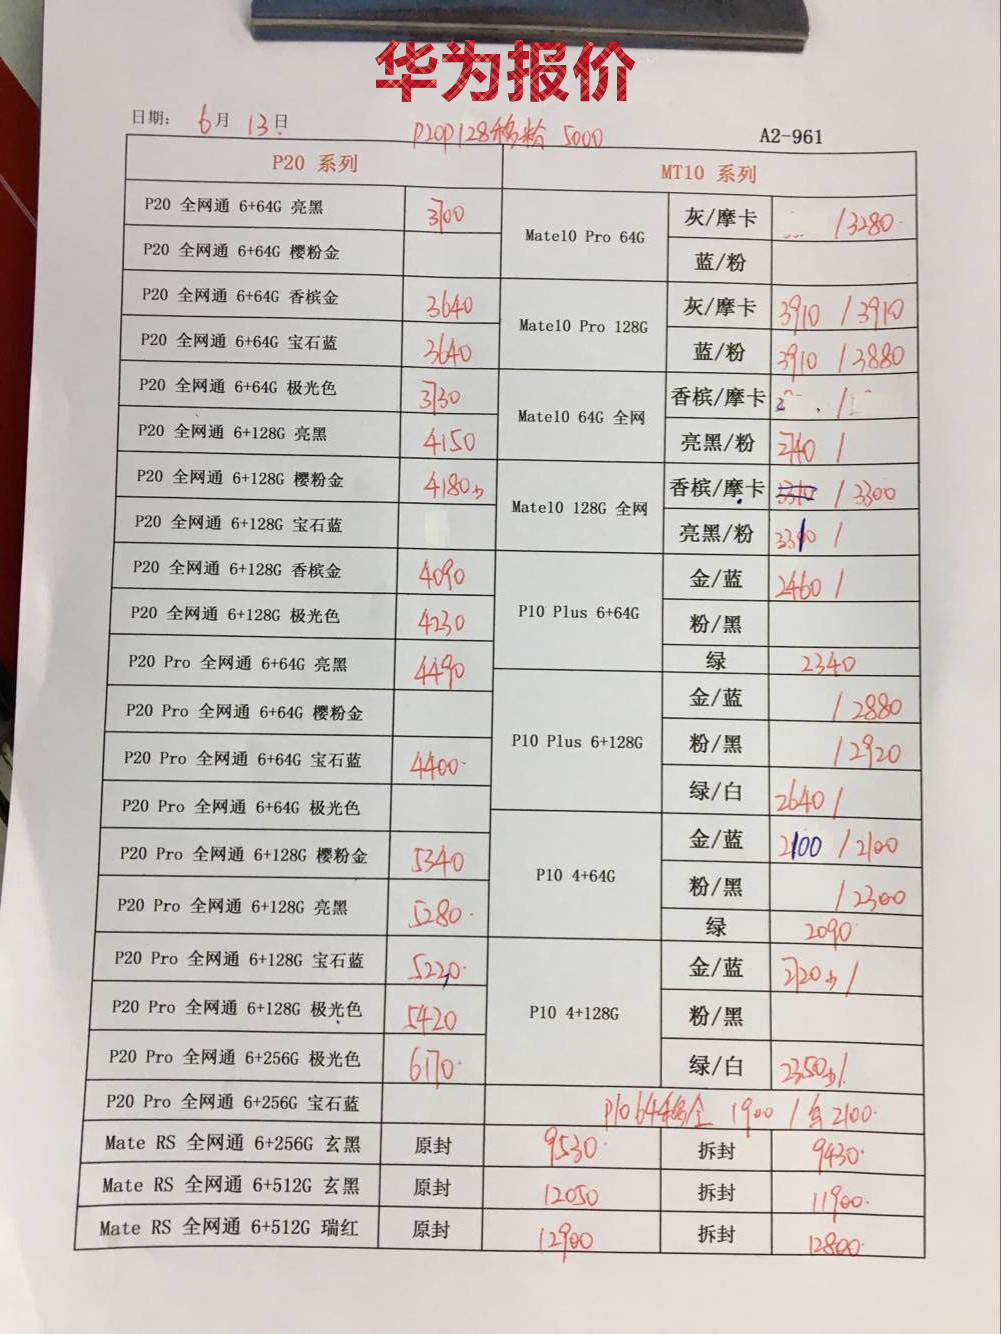 华为报价
日期： 6月 13日
P20P128移粉 5000
A2-961
P20 系列
MT10 系列
P20 全网通 6+64G 亮黑 3700
P20 全网通 6+64G 樱粉金
P20 全网通 6+64G 香槟金 3640
P20 全网通 6+64G 宝石蓝 3640
P20 全网通 6+64G 极光色 3730
P20 全网通 6+128G 亮黑 4150
P20 全网通 6+128G 樱粉金 4180
P20 全网通 6+128G 宝石蓝
P20 全网通 6+128G 香槟金 4090
P20 全网通 6+128G 极光色 4230
P20 Pro 全网通 6+64G 亮黑 4490
P20 Pro 全网通 6+64G 樱粉金
P20 Pro 全网通 6+64G 宝石蓝 4400
P20 Pro 全网通 6+64G 极光色
P20 Pro 全网通 6+128G 樱粉金 5340
P20 Pro 全网通 6+128G 亮黑 5280
P20 Pro 全网通 6+128G 宝石蓝 5220
P20 Pro 全网通 6+128G 极光色 5420
P20 Pro 全网通 6+256G 极光色 6170
P20 Pro 全网通 6+256G 宝石蓝
Mate10 Pro 64G
灰/摩卡 /3280
蓝/粉
Mate10 Pro 128G
灰/摩卡 3910 / 3910
蓝/粉 3910 / 3880
Mate10 64G 全网
香槟/摩卡 /
亮黑/粉 2740 /
Mate10 128G 全网
香槟/摩卡 / 3300
亮黑/粉 /
P10 Plus 6+64G
金/蓝 2460 /
粉/黑
绿 2340
P10 Plus 6+128G
金/蓝 / 2880
粉/黑 / 2920
绿/白 2640 /
P10 4+64G
金/蓝 2100 / 2100
粉/黑 / 2300
绿 2090
P10 4+128G
金/蓝 2720 /
粉/黑
绿/白 2350 /
P10 64 移金 1900 / 2100
Mate RS 全网通 6+256G 玄黑 原封 9530 拆封 9430
Mate RS 全网通 6+512G 玄黑 原封 12050 拆封 11900
Mate RS 全网通 6+512G 瑞红 原封 12900 拆封 12800